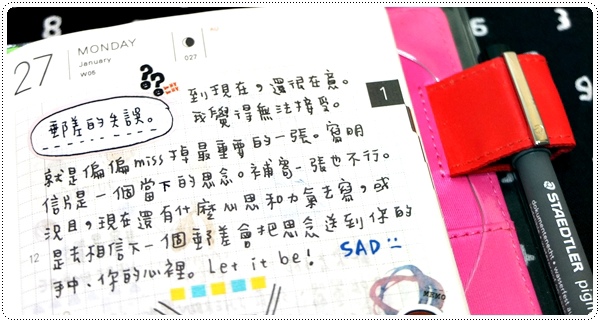 27
MONDAY
January
W05
027
1
??
到現在，還很在意。
我覺得無法接受。
郵差的失誤。
就是偏偏miss掉最重要的一張。寫明
信片是一個當下的思念。補寄一張也不行。
況且，現在還有什麼心思和力氣去寫，或
是去相信下一個郵差會把思念送到你的
手中、你的心裡。Let it be!
SAD
12
MEMO
STAEDTLER
pigm